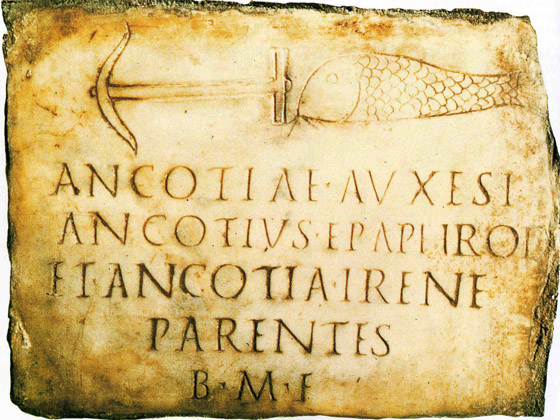 ANCOTIAE·AVXESI
ANCOTIVS·EPAPHROD
ET·ANCOTIA·IRENE
PARENTES
B·M·F